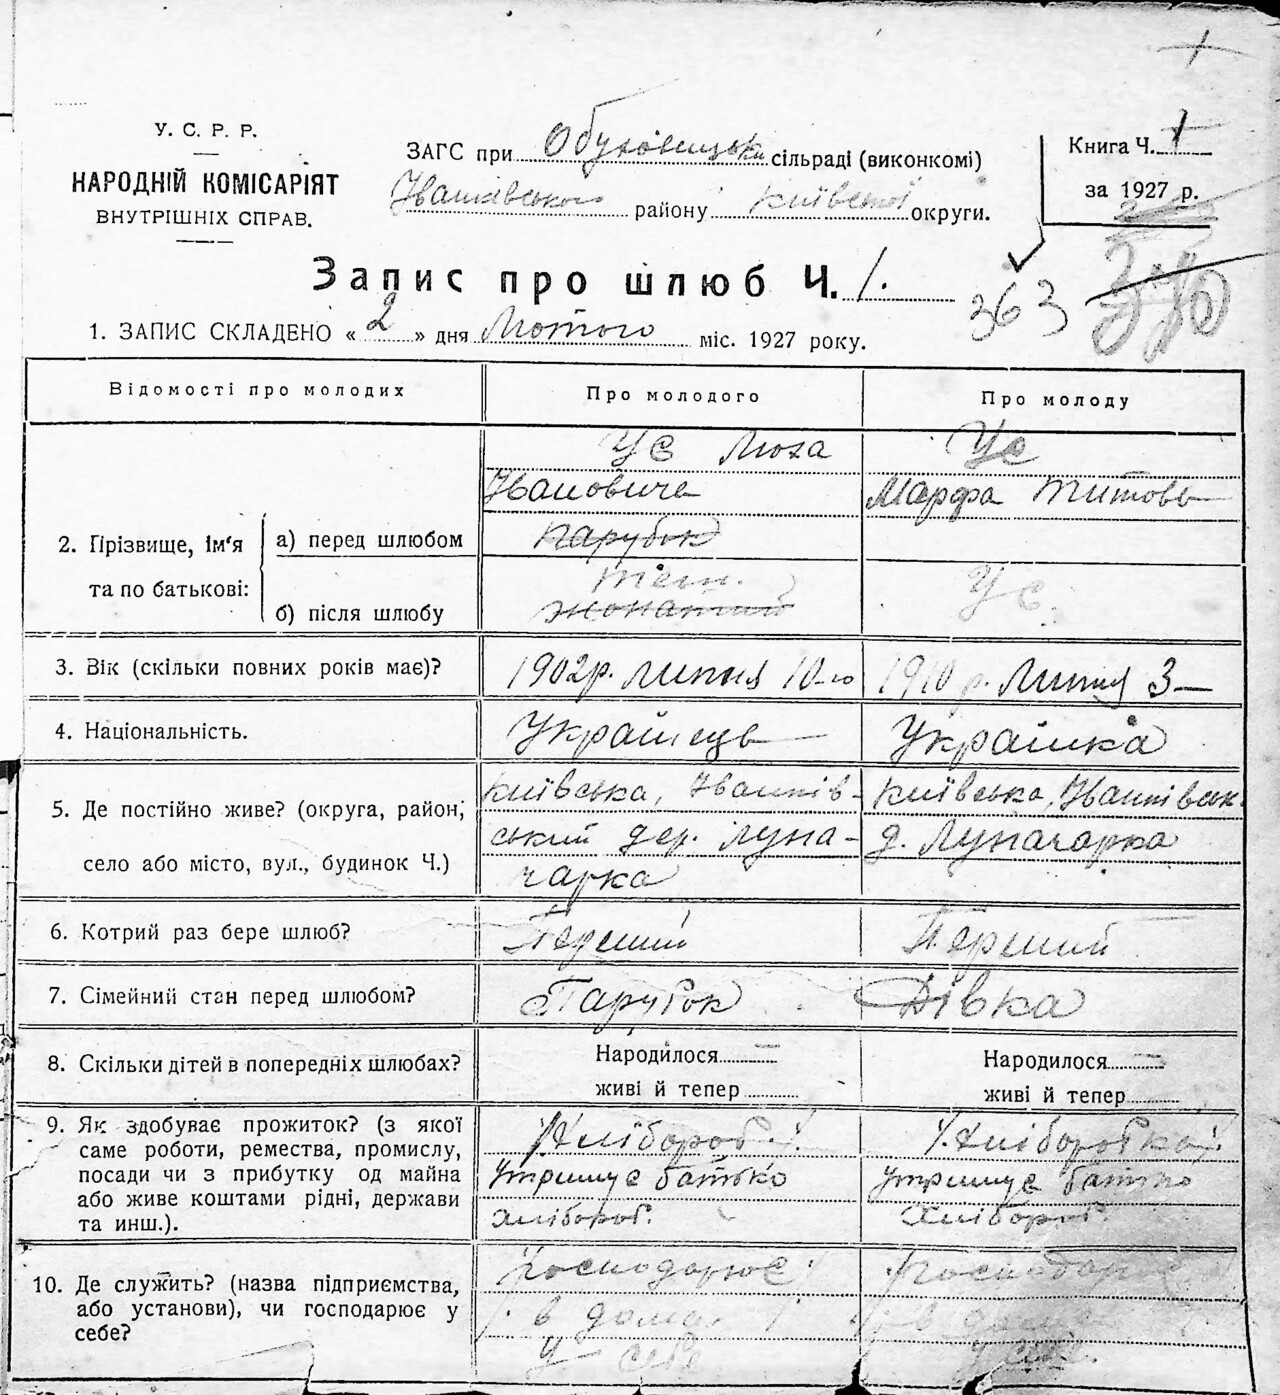 У. С. Р. Р.
НАРОДНІЙ КОМІСАРІЯТ
ВНУТРІШНІХ СПРАВ.
ЗАГС при Обуховицькій сільраді (виконкомі)
Іванківського району Київської округи.
Книга Ч. 1
за 1927 р.
Запис про шлюб Ч. 1.
363
1. ЗАПИС СКЛАДЕНО « 2 » дня Лютого міс. 1927 року.
Відомості про молодих
Про молодого
Про молоду
2. Прізвище, ім'я та по батькові:
а) перед шлюбом
б) після шлюбу
Ус
Івановича
парубок
жонатий
Ус
Марфа Титовь
Ус.
3. Вік (скільки повних років має)?
1902р. липня 10-го
1910 р. Липня 3
4. Національність.
Українець
Українка
5. Де постійно живе? (округа, район, село або місто, вул., будинок Ч.)
Київська, Іванків-
ський дер. Луна-
чарка
Київська, Іванківськ.
д. Луначарка
6. Котрий раз бере шлюб?
Перший
Перший
7. Сімейний стан перед шлюбом?
Парубок
Дівка
8. Скільки дітей в попередніх шлюбах?
Народилося —
живі й тепер
Народилося —
живі й тепер
9. Як здобуває прожиток? (з якої
саме роботи, ремества, промислу,
посади чи з прибутку од майна
або живе коштами рідні, держави
та инш.).
Хлібороб
утримує батько
хлібороб.
Хліборобка
утримує батько
хлібороб.
10. Де служить? (назва підприємства,
або установи), чи господарює у
себе?
господарює
в дома
у себе
господарює
в дома
у себе.